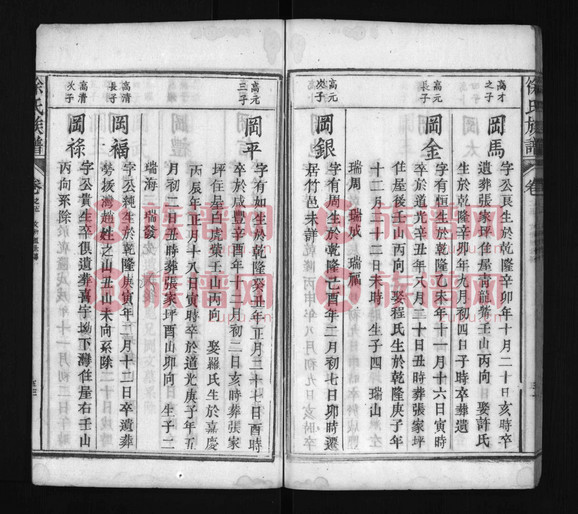 徐氏族譜
卷
高才之子
岡馬
字公長生於乾隆辛卯年十月二十日亥時卒
遺葬張家坪住屋青龍嘴壬山丙向 娶許氏
生於乾隆辛卯年九月初四日子時卒葬遺
高元長子
岡金
字有恒生於乾隆乙未年十一月十六日寅時
卒於道光辛丑年八月三十日丑時葬張家坪
住屋後壬山丙向 娶程氏生於乾隆庚子年
十二月二十二日未時 生子四 瑞山
瑞周 瑞成 瑞福
高元次子
岡銀
字有周生於乾隆己亥年二月初七日卯時遷
居竹邑未詳
高元三子
岡平
字有如生於乾隆癸丑年正月二十七日酉時
卒於咸豐辛酉年二月初二日亥時葬張家
坪住屋白虎嘴壬山丙向 娶羅氏生於嘉慶
丙辰年正月十八日寅時卒於道光庚子年五
月初二日丑時葬張家坪酉山卯向 生子二
瑞海 瑞發
高清長子
岡福
字公純生於乾隆庚寅年二月十二日卒遺葬
勞扳灣趙姓之山丑山未向系除
高清次子
岡祿
字公貴生卒俱遺葬喜字坳下灣住屋右壬山
丙向系除
徐氏族譜
卷